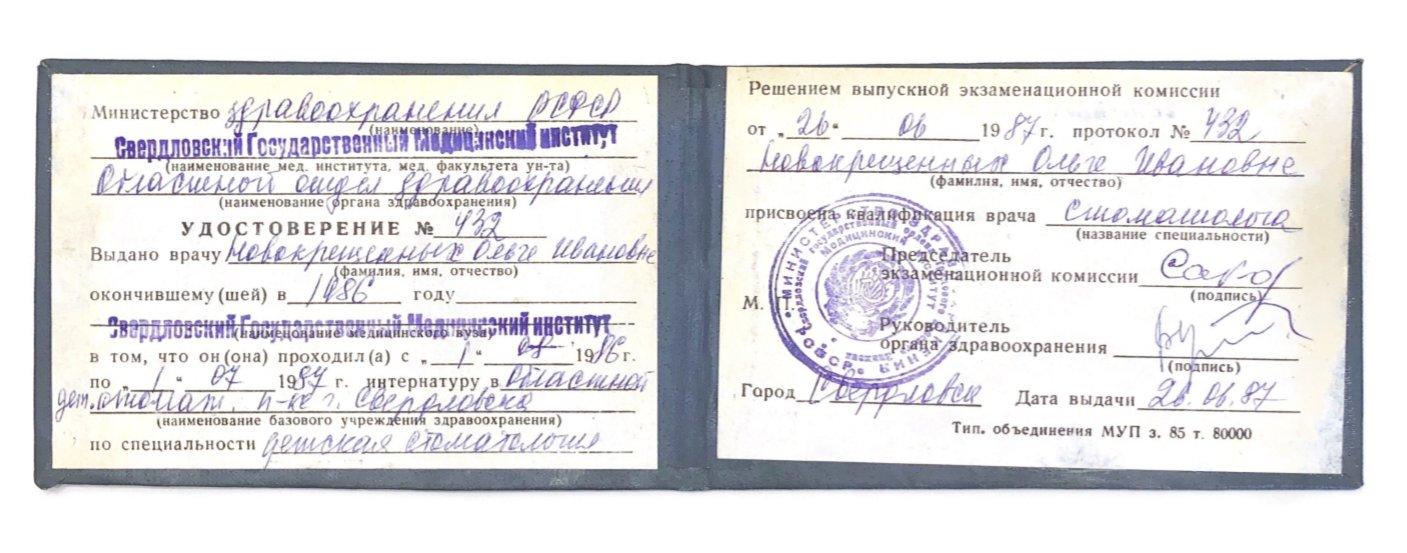 Министерство здравоохранения РСФСР
(наименование)
Свердловский Государственный Медицинский институт
(наименование мед. института, мед. факультета ун-та)
Областной отдел здравоохранения
(наименование органа здравоохранения)
УДОСТОВЕРЕНИЕ № 432
Выдано врачу Новокрещенных Ольге Ивановне
(фамилия, имя, отчество)
окончившему (шей) в 1986 году
Свердловский Государственный Медицинский институт
(наименование медицинского вуза)
в том, что он (она) проходил (а) с „1“ 08 1986 г.
по „1“ 07 1987 г. интернатуру в Областной
дет. стомат. п-ке г. Свердловска
(наименование базового учреждения здравоохранения)
по специальности детская стоматология
Решением выпускной экзаменационной комиссии
от „26“ 06 1987 г. протокол № 432
Новокрещенных Ольге Ивановне
(фамилия, имя, отчество)
присвоена квалификация врача стоматолога
(название специальности)
Председатель
экзаменационной комиссии
(подпись)
М. П.
Руководитель
органа здравоохранения
(подпись)
Город Свердловск Дата выдачи 26.06.87
Тип. объединения МУП з. 85 т. 80000